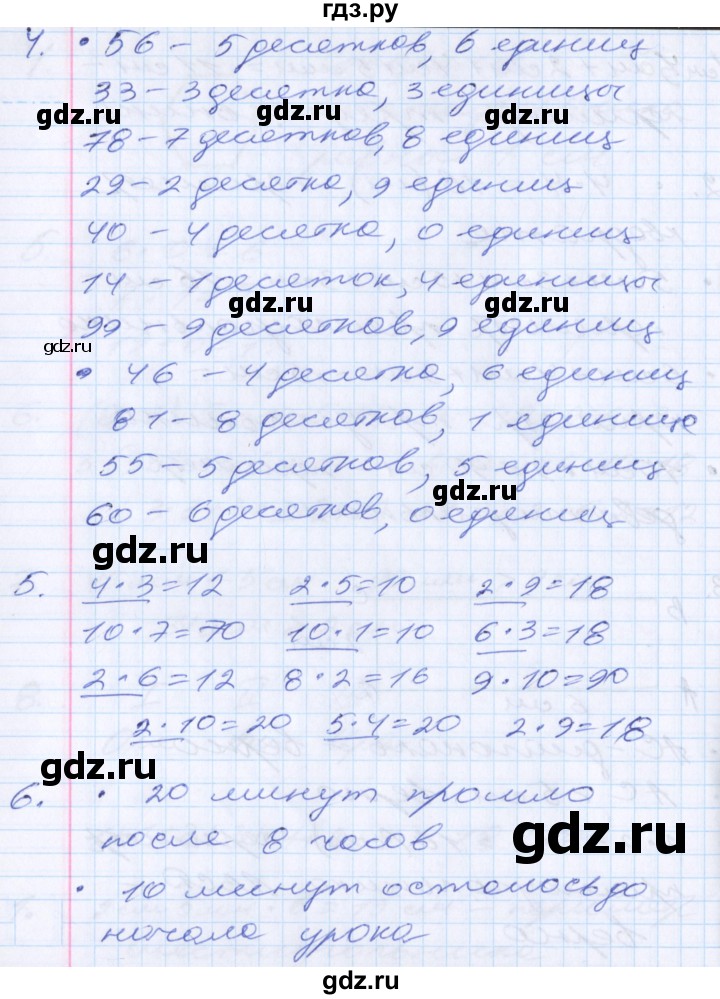 гдз.ру
4. • 56 – 5 десятков, 6 единиц
33 – 3 десятка, 3 единицы
gdz.ru gdz.ru
78 – 7 десятков, 8 единиц
29 – 2 десятка, 9 единиц
40 – 4 десятка, 0 единиц
14 – 1 десяток, 4 единицы
gdz.ru gdz.ru
99 – 9 десятков, 9 единиц
gdz.ru
• 46 – 4 десятка, 6 единиц
81 – 8 десятков, 1 единица
55 – 5 десятков, 5 единиц
gdz.ru
60 – 6 десятков, 0 единиц
gdz.ru
5. 4 · 3 = 12 2 · 5 = 10 2 · 9 = 18
10 · 7 = 70 10 · 1 = 10 6 · 3 = 18
2 · 6 = 12 8 · 2 = 16 9 · 10 = 90
2 · 10 = 20 5 · 4 = 20 2 · 9 = 18
gdz.ru
6. • 20 минут прошло
после 8 часов
gdz.ru
• 10 минут осталось до
начала урока
gdz.ru
gdz.ru